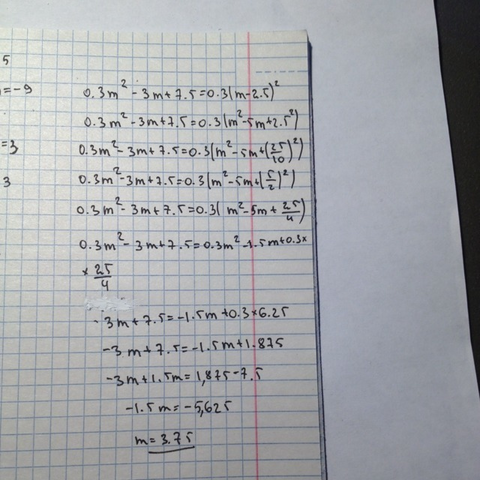 5
=-9
0.3m²-3m+7.5=0.3(m-2.5)²
0.3m²-3m+7.5=0.3(m²-5m+2.5²)
=3
0.3m²-3m+7.5=0.3(m²-5m+(25/10)²)
3
0.3m²-3m+7.5=0.3(m²-5m+(5/2)²)
0.3m²-3m+7.5=0.3(m²-5m+25/4)
0.3m²-3m+7.5=0.3m²-1.5m+0.3×
×25/4
-3m+7.5=-1.5m+0.3×6.25
-3m+7.5=-1.5m+1.875
-3m+1.5m=1,875-7.5
-1.5m=-5,625
m=3.75